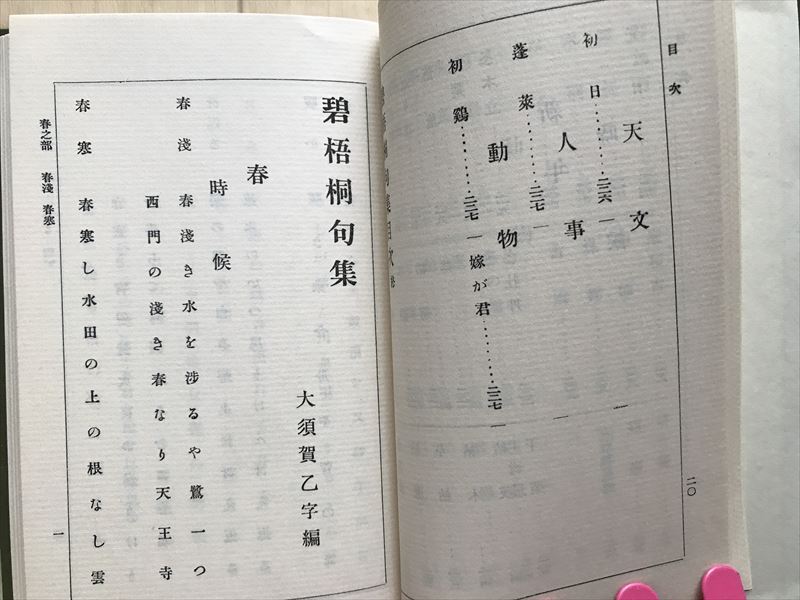 目次
天文
初日………二三六
人事
蓬萊………二三七
動物
初鷄………二三七
嫁が君………二三七
二〇
碧梧桐句集
大須賀乙字編
春
時候
春淺 春淺き水を渉るや鷺一つ
西門の淺き春なり天王寺
春寒 春寒し水田の上の根なし雲
春之部 春淺 春寒
一